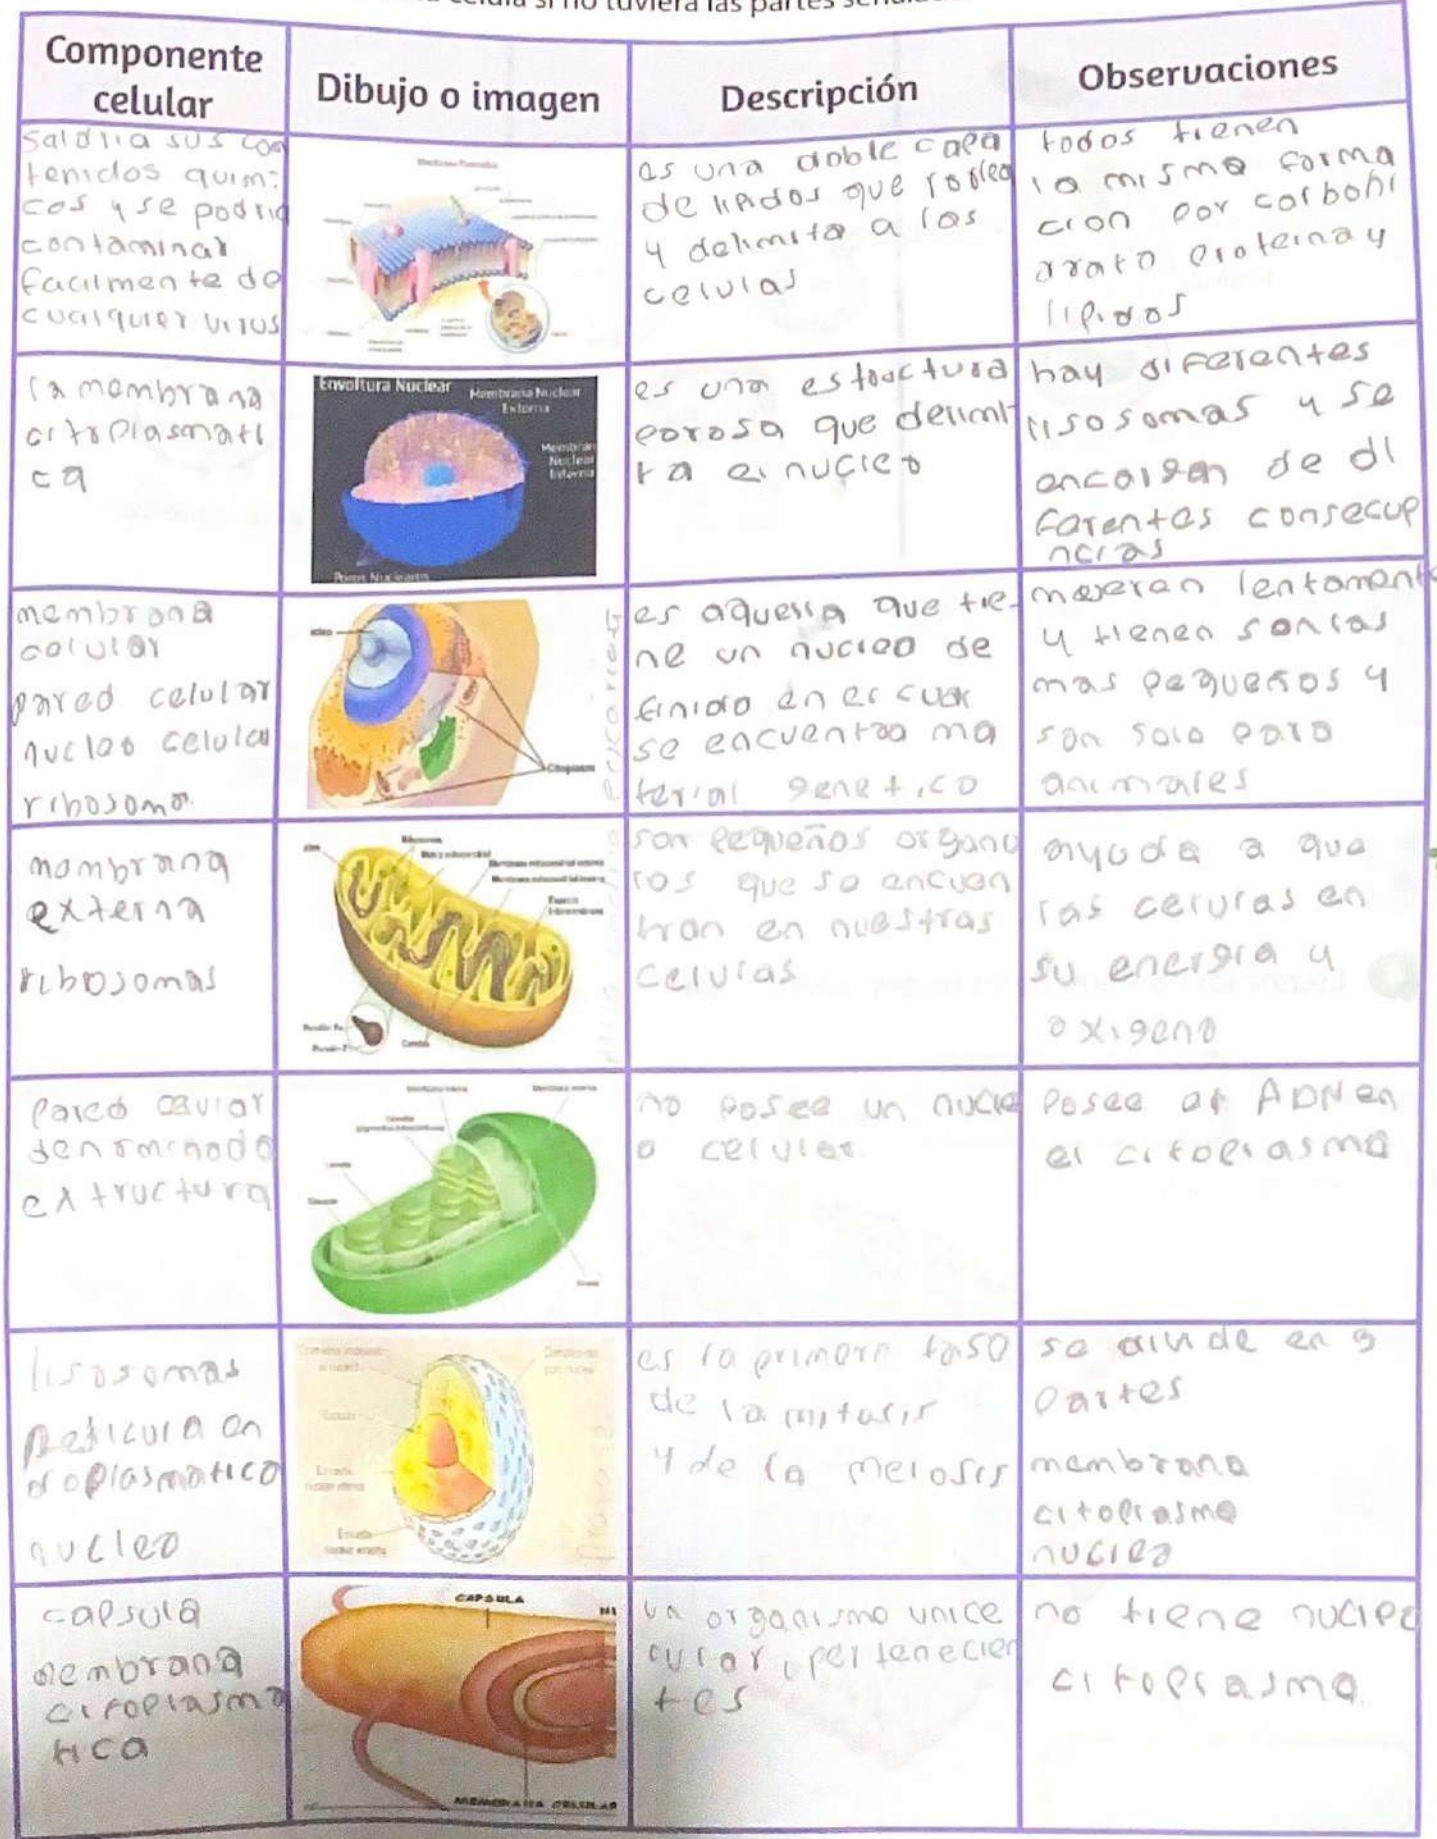 Componente celular
Dibujo o imagen
Descripción
Observaciones
saldria sus con
tenidos quimi
cos y se podria
contaminar
facilmente de
cualquier virus
es una doble capa
de lipidos que rodea
y delimita a las
celulas
todos tienen
la misma forma
cion por carbohi
drato proteina y
lipidos
la membrana
citoplasmati
ca
Envoltura Nuclear
Membrana Nuclear
Externa
Membrana
Nuclear
Interna
Poros Nucleares
es una estructura
porosa que delimi
ta el nucleo
hay diferentes
lisosomas y se
encargan de di
ferentes consecue
ncias
membrana
celular
pared celular
nucleo celular
ribosoma
Citoplasma
es aquella que tie
ne un nucleo de
finido en el cual
se encuentra ma
terial genetico
mueran lentamente
y tienen son las
mas pequeños y
son solo para
animales
membrana
externa
ribosomas
son pequeños organu
los que se encuen
tran en nuestras
celulas
ayuda a que
las celulas en
su energia y
oxigeno
pared celular
denominada
extructura
no posee un nucle
o celular
Posee el ADN en
el citoplasma
lisosomas
reticula en
doplasmatico
nucleo
es la primera fase
de la mitosis
y de la meiosis
se divide en 3
partes
membrana
citoplasma
nucleo
capsula
membrana
citoplasma
tica
CAPSULA
MEMBRANA CELULAR
un organismo unice
lular, pertenecien
tes
no tiene nucleo
citoplasma